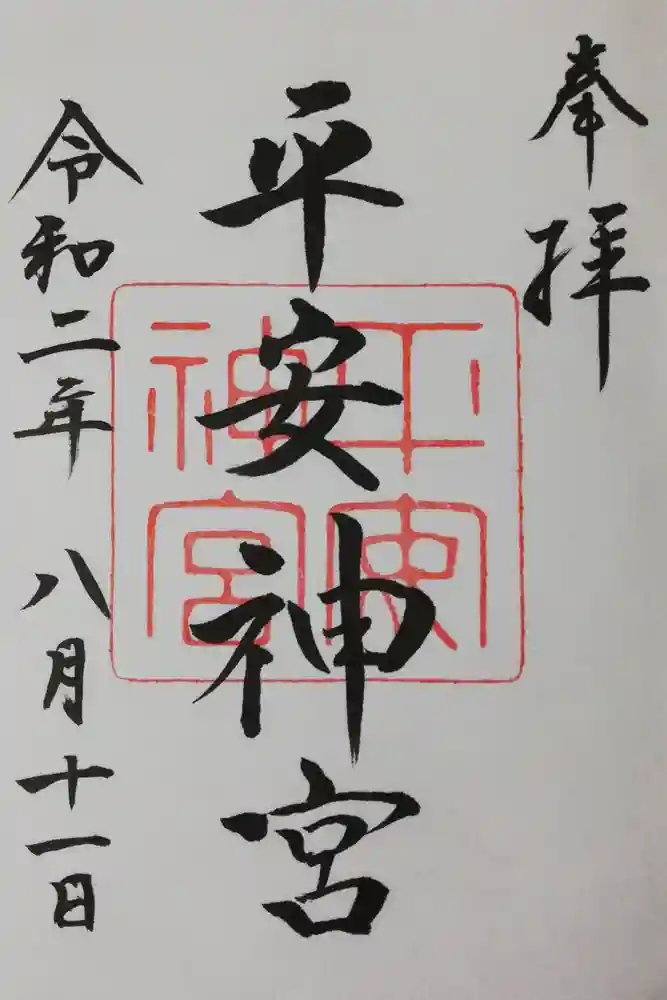 奉拝
平安神宮
平安神宮
令和二年 八月十一日